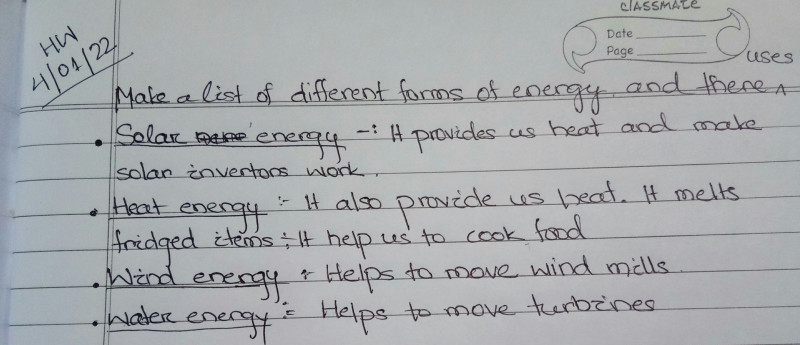 CLASSMATE
Date
Page
HW
4/01/22
uses
Make a list of different forms of energy and there ^
• Solar energy -: It provides us heat and make
solar invertors work.
• Heat energy :- It also provide us heat. It melts
fridged items ; It help us to cook food
• Wind energy : Helps to move wind mills.
• Water energy :- Helps to move turbines